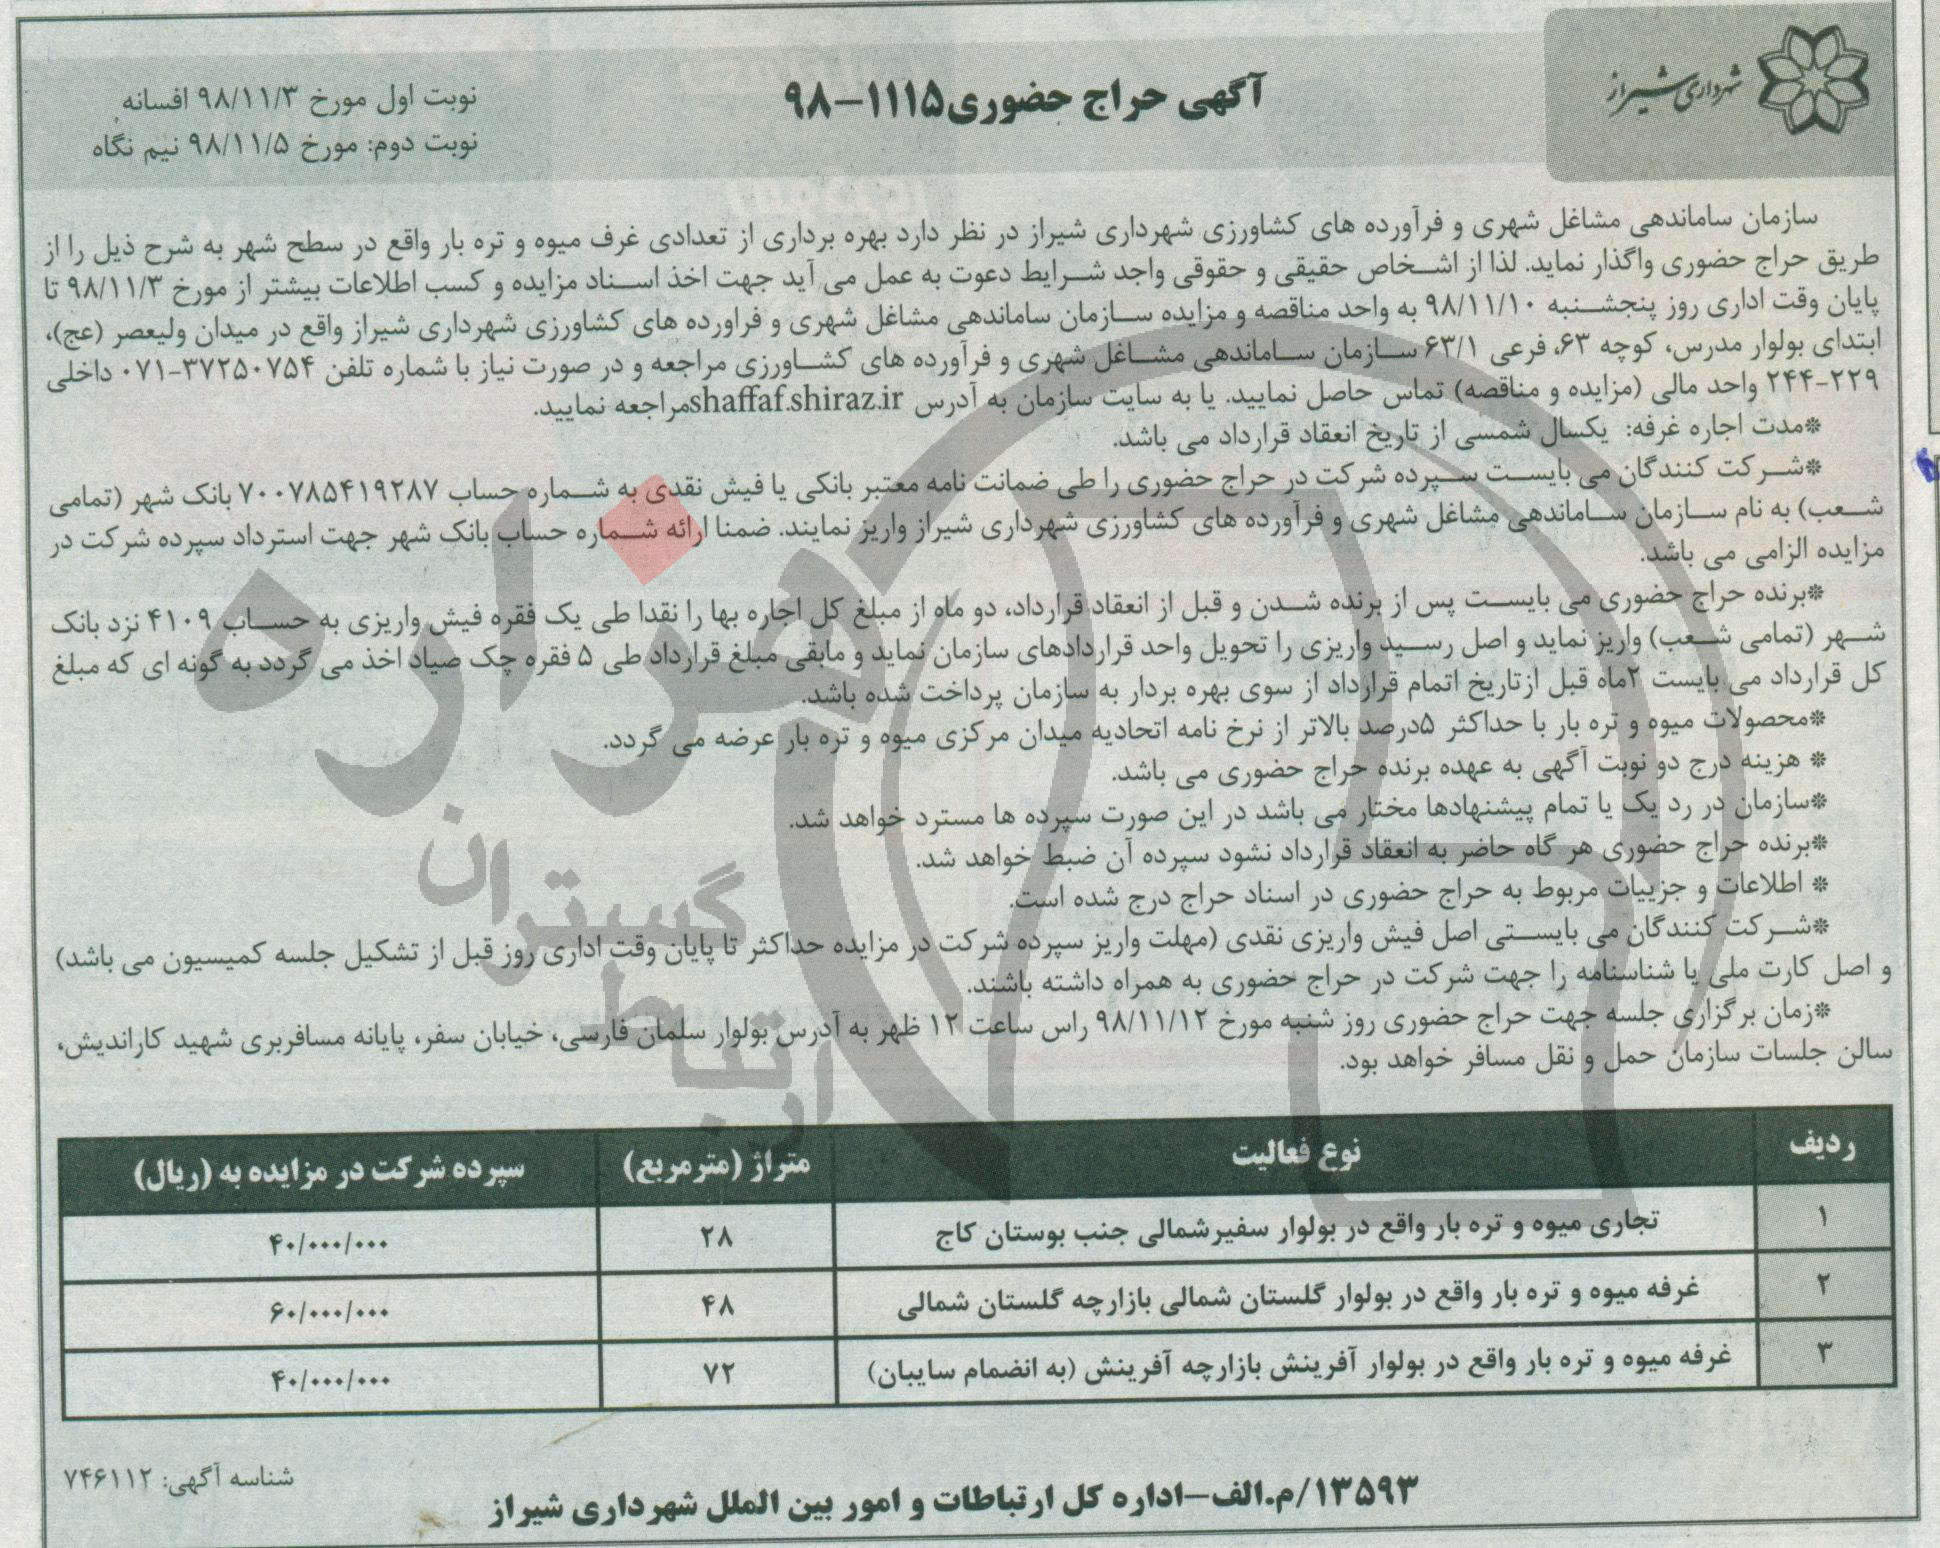 شهرداری شیراز
آگهی حراج حضوری۱۱۱۵–۹۸
نوبت اول مورخ ۹۸/۱۱/۳ افسانه
نوبت دوم: مورخ ۹۸/۱۱/۵ نیم نگاه
سازمان ساماندهی مشاغل شهری و فرآورده های کشاورزی شهرداری شیراز در نظر دارد بهره برداری از تعدادی غرف میوه و تره بار واقع در سطح شهر به شرح ذیل را از
طریق حراج حضوری واگذار نماید. لذا از اشخاص حقیقی و حقوقی واجد شرایط دعوت به عمل می آید جهت اخذ اسناد مزایده و کسب اطلاعات بیشتر از مورخ ۹۸/۱۱/۳ تا
پایان وقت اداری روز پنجشنبه ۹۸/۱۱/۱۰ به واحد مناقصه و مزایده سازمان ساماندهی مشاغل شهری و فراورده های کشاورزی شهرداری شیراز واقع در میدان ولیعصر (عج)،
ابتدای بولوار مدرس، کوچه ۶۳، فرعی ۶۳/۱ سازمان ساماندهی مشاغل شهری و فرآورده های کشاورزی مراجعه و در صورت نیاز با شماره تلفن ۳۷۲۵۰۷۵۴-۰۷۱ داخلی
۲۲۹-۲۴۴ واحد مالی (مزایده و مناقصه) تماس حاصل نمایید. یا به سایت سازمان به آدرس shaffaf.shiraz.irمراجعه نمایید.
*مدت اجاره غرفه: یکسال شمسی از تاریخ انعقاد قرارداد می باشد.
*شرکت کنندگان می بایست سپرده شرکت در حراج حضوری را طی ضمانت نامه معتبر بانکی یا فیش نقدی به شماره حساب ۷۰۰۷۸۵۴۱۹۲۸۷ بانک شهر (تمامی
شعب) به نام سازمان ساماندهی مشاغل شهری و فرآورده های کشاورزی شهرداری شیراز واریز نمایند. ضمنا ارائه شماره حساب بانک شهر جهت استرداد سپرده شرکت در
مزایده الزامی می باشد.
*برنده حراج حضوری می بایست پس از برنده شدن و قبل از انعقاد قرارداد، دو ماه از مبلغ کل اجاره بها را نقدا طی یک فقره فیش واریزی به حساب ۴۱۰۹ نزد بانک
شهر (تمامی شعب) واریز نماید و اصل رسید واریزی را تحویل واحد قراردادهای سازمان نماید و مابقی مبلغ قرارداد طی ۵ فقره چک صیاد اخذ می گردد به گونه ای که مبلغ
کل قرارداد می بایست ۲ماه قبل ازتاریخ اتمام قرارداد از سوی بهره بردار به سازمان پرداخت شده باشد.
*محصولات میوه و تره بار با حداکثر ۵درصد بالاتر از نرخ نامه اتحادیه میدان مرکزی میوه و تره بار عرضه می گردد.
* هزینه درج دو نوبت آگهی به عهده برنده حراج حضوری می باشد.
*سازمان در رد یک یا تمام پیشنهادها مختار می باشد در این صورت سپرده ها مسترد خواهد شد.
*برنده حراج حضوری هر گاه حاضر به انعقاد قرارداد نشود سپرده آن ضبط خواهد شد.
* اطلاعات و جزییات مربوط به حراج حضوری در اسناد حراج درج شده است.
*شرکت کنندگان می بایستی اصل فیش واریزی نقدی (مهلت واریز سپرده شرکت در مزایده حداکثر تا پایان وقت اداری روز قبل از تشکیل جلسه کمیسیون می باشد)
و اصل کارت ملی یا شناسنامه را جهت شرکت در حراج حضوری به همراه داشته باشند.
*زمان برگزاری جلسه جهت حراج حضوری روز شنبه مورخ ۹۸/۱۱/۱۲ راس ساعت ۱۲ ظهر به آدرس بولوار سلمان فارسی، خیابان سفر، پایانه مسافربری شهید کاراندیش،
سالن جلسات سازمان حمل و نقل مسافر خواهد بود.
ردیف نوع فعالیت متراژ (مترمربع) سپرده شرکت در مزایده به (ریال)
۱ تجاری میوه و تره بار واقع در بولوار سفیرشمالی جنب بوستان کاج ۲۸ ۴۰/۰۰۰/۰۰۰
۲ غرفه میوه و تره بار واقع در بولوار گلستان شمالی بازارچه گلستان شمالی ۴۸ ۶۰/۰۰۰/۰۰۰
۳ غرفه میوه و تره بار واقع در بولوار آفرینش بازارچه آفرینش (به انضمام سایبان) ۷۲ ۴۰/۰۰۰/۰۰۰
۱۳۵۹۳/م.الف–اداره کل ارتباطات و امور بین الملل شهرداری شیراز
شناسه آگهی: ۷۴۶۱۱۲
هزاره
گستران
ارتباط